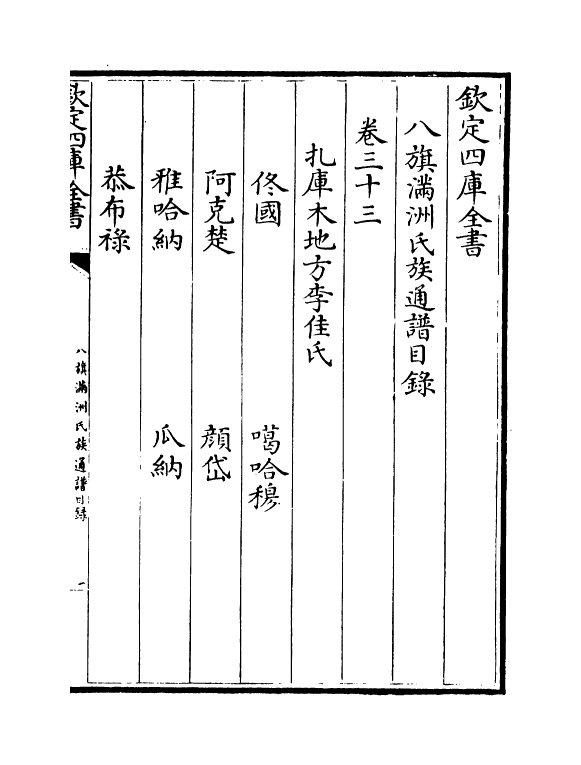 欽定四庫全書
八旗滿洲氏族通譜目錄
卷三十三
扎庫木地方李佳氏
佟國　噶哈穆
阿克楚　顔岱
雅哈納　瓜納
恭布祿
欽定四庫全書
八旗滿洲氏族通譜目錄
一